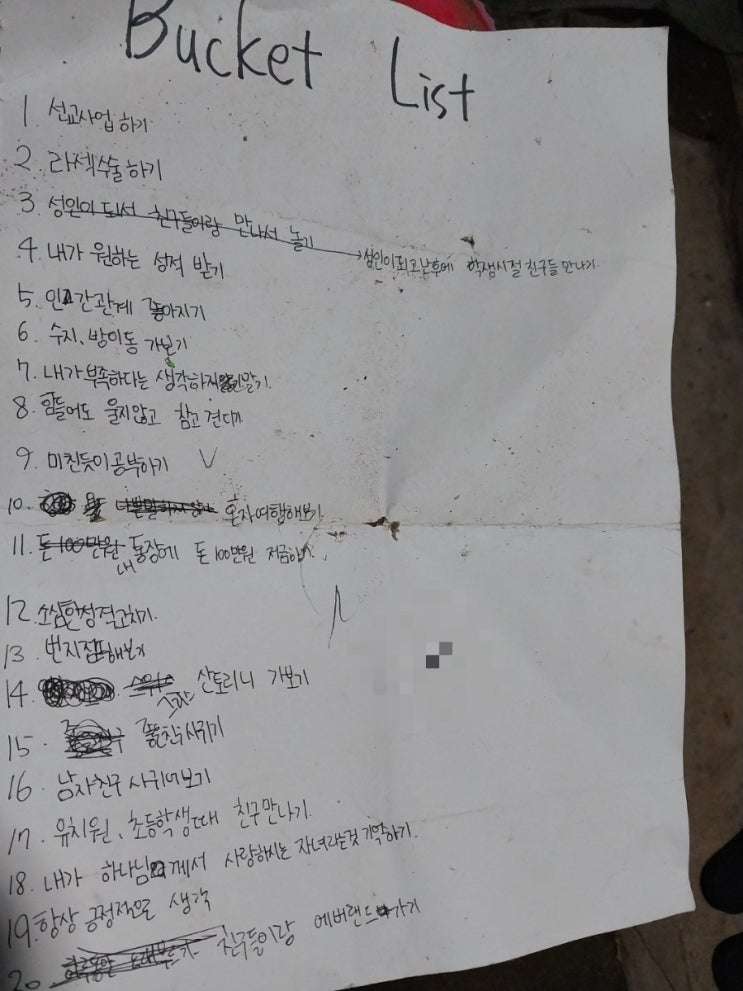 Bucket List
1 선교사업하기
2 라섹수술하기
3 성인이 되서 친구들이랑 만나서 놀기
→성인이 되고난후에 학생시절 친구들 만나기.
4. 내가 원하는 성적 받기
5. 인간관계 좋아지기
6 수지, 방이동 가보기
7. 내가 부족하다는 생각하지말기.
8. 힘들어도 울지않고 참고 견디기
9. 미친듯이 공부하기 V
10. 혼자여행해보기
11. 돈 100만원 내 통장에 돈 100만원 저금하기.
12. 소심한성격고치기.
13 번지점프해보기
14. 산토리니 가보기
15. 사귀기
16. 남자친구 사귀어보기
17. 유치원, 초등학생때 친구만나기.
18. 내가 하나님께서 사랑하시는 자녀라는것 기억하기.
19. 항상 긍정적으로 생각
20 친구들이랑 에버랜드 가기